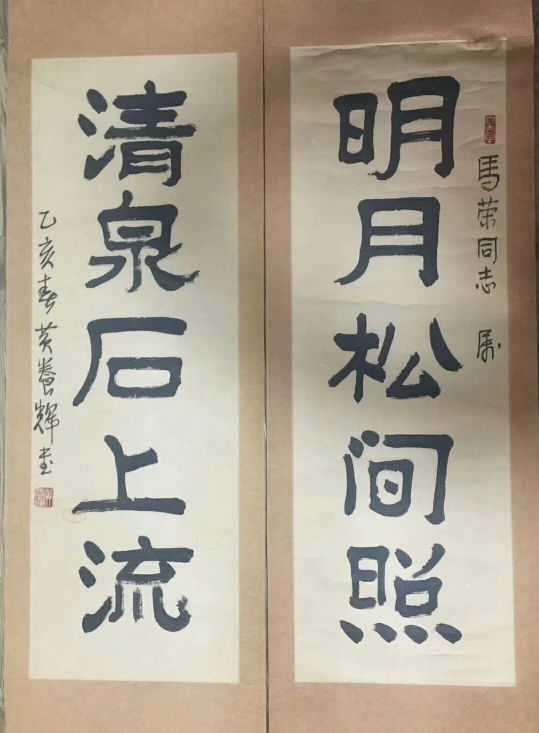 明月松间照
馬荣同志 属
清泉石上流
乙亥春 黄養輝書